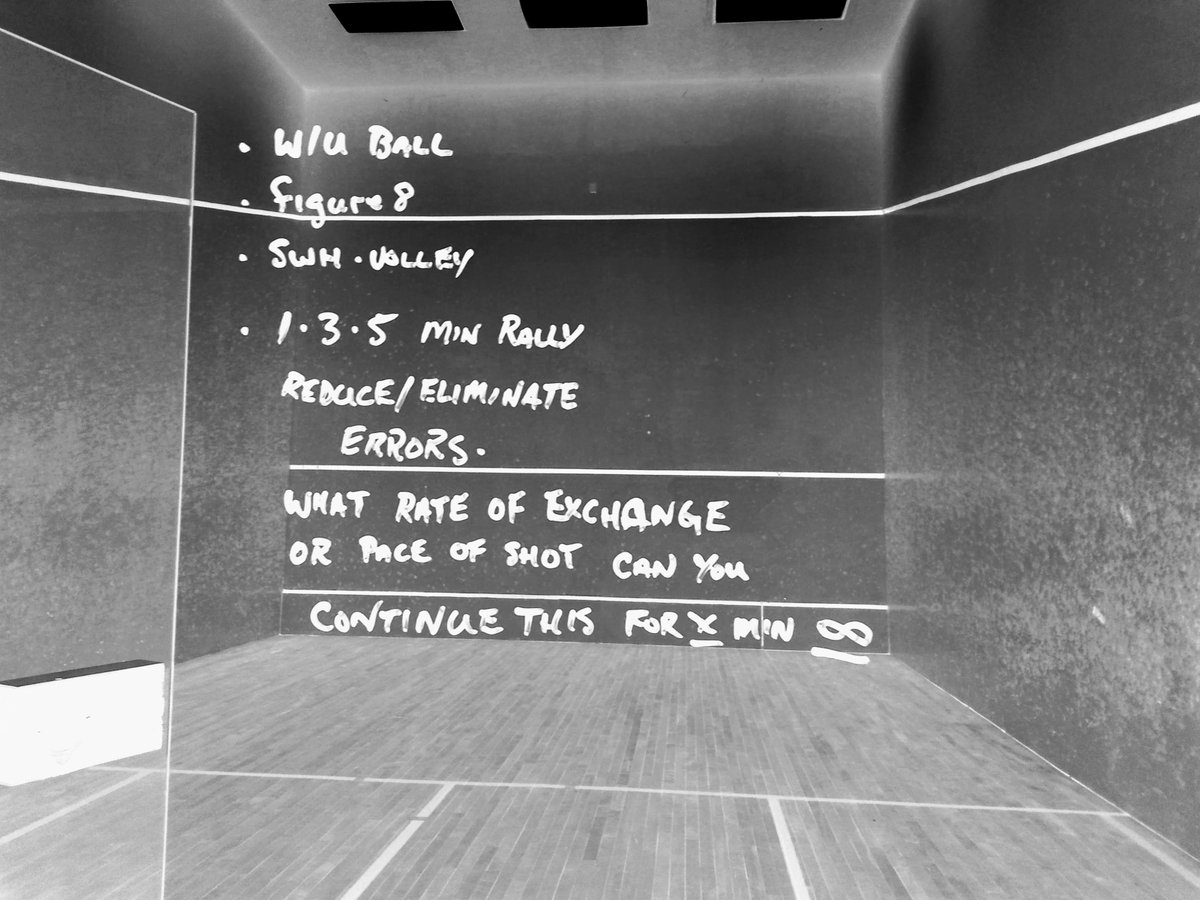 • W/U BALL
• Figure 8
• SWH • VOLLEY
• 1•3•5 MIN RALLY
REDUCE/ELIMINATE
ERRORS.
WHAT RATE OF EXCHANGE
OR PACE OF SHOT CAN YOU
CONTINUE THIS FOR X MIN ∞